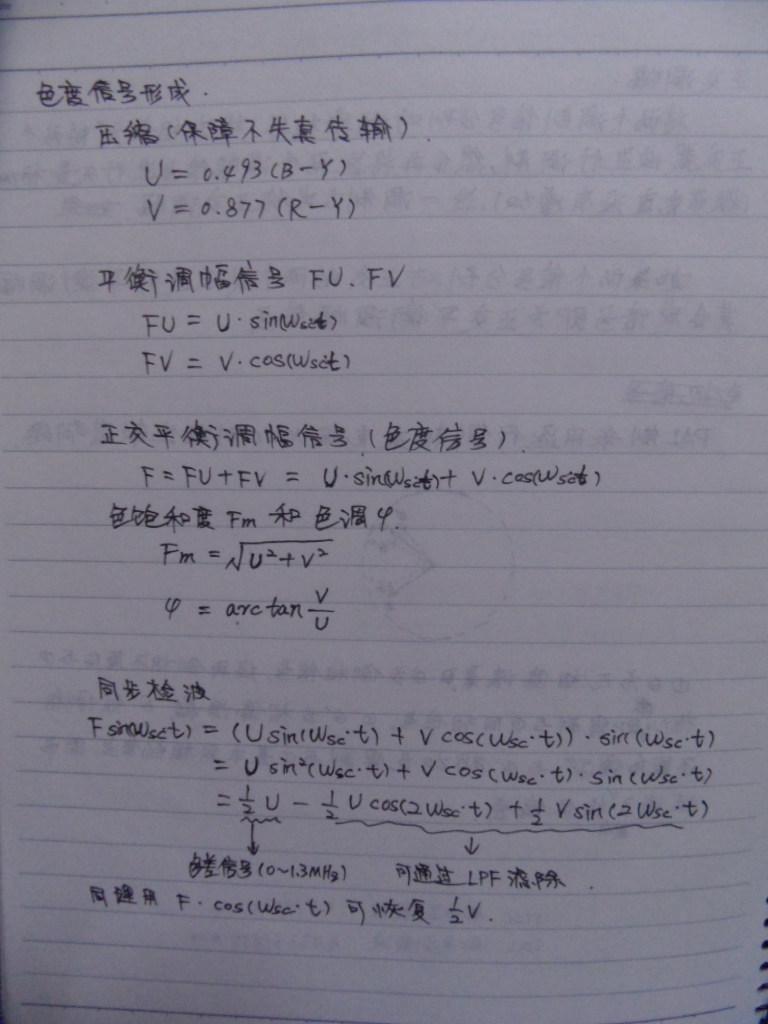 色度信号形成.
压缩(保障不失真传输).
U = 0.493(B-Y)
V = 0.877(R-Y)
平衡调幅信号 FU、FV
FU = U·sin(ωsct)
FV = V·cos(ωsct)
正交平衡调幅信号(色度信号).
F = FU+FV = U·sin(ωsct)+ V·cos(ωsct)
色饱和度 Fm 和 色调 φ.
Fm = √U²+V²
φ = arctan V/U
同步检波
F sin(ωsc·t) = (U sin(ωsc·t) + V cos(ωsc·t))·sin(ωsc·t)
= U sin²(ωsc·t) + V cos(ωsc·t)·sin(ωsc·t)
= ½U - ½U cos(2ωsc·t) + ½V sin(2ωsc·t)
色差信号(0~1.3MHz) 可通过LPF滤除.
同理用 F·cos(ωsc·t) 可恢复 ½V.